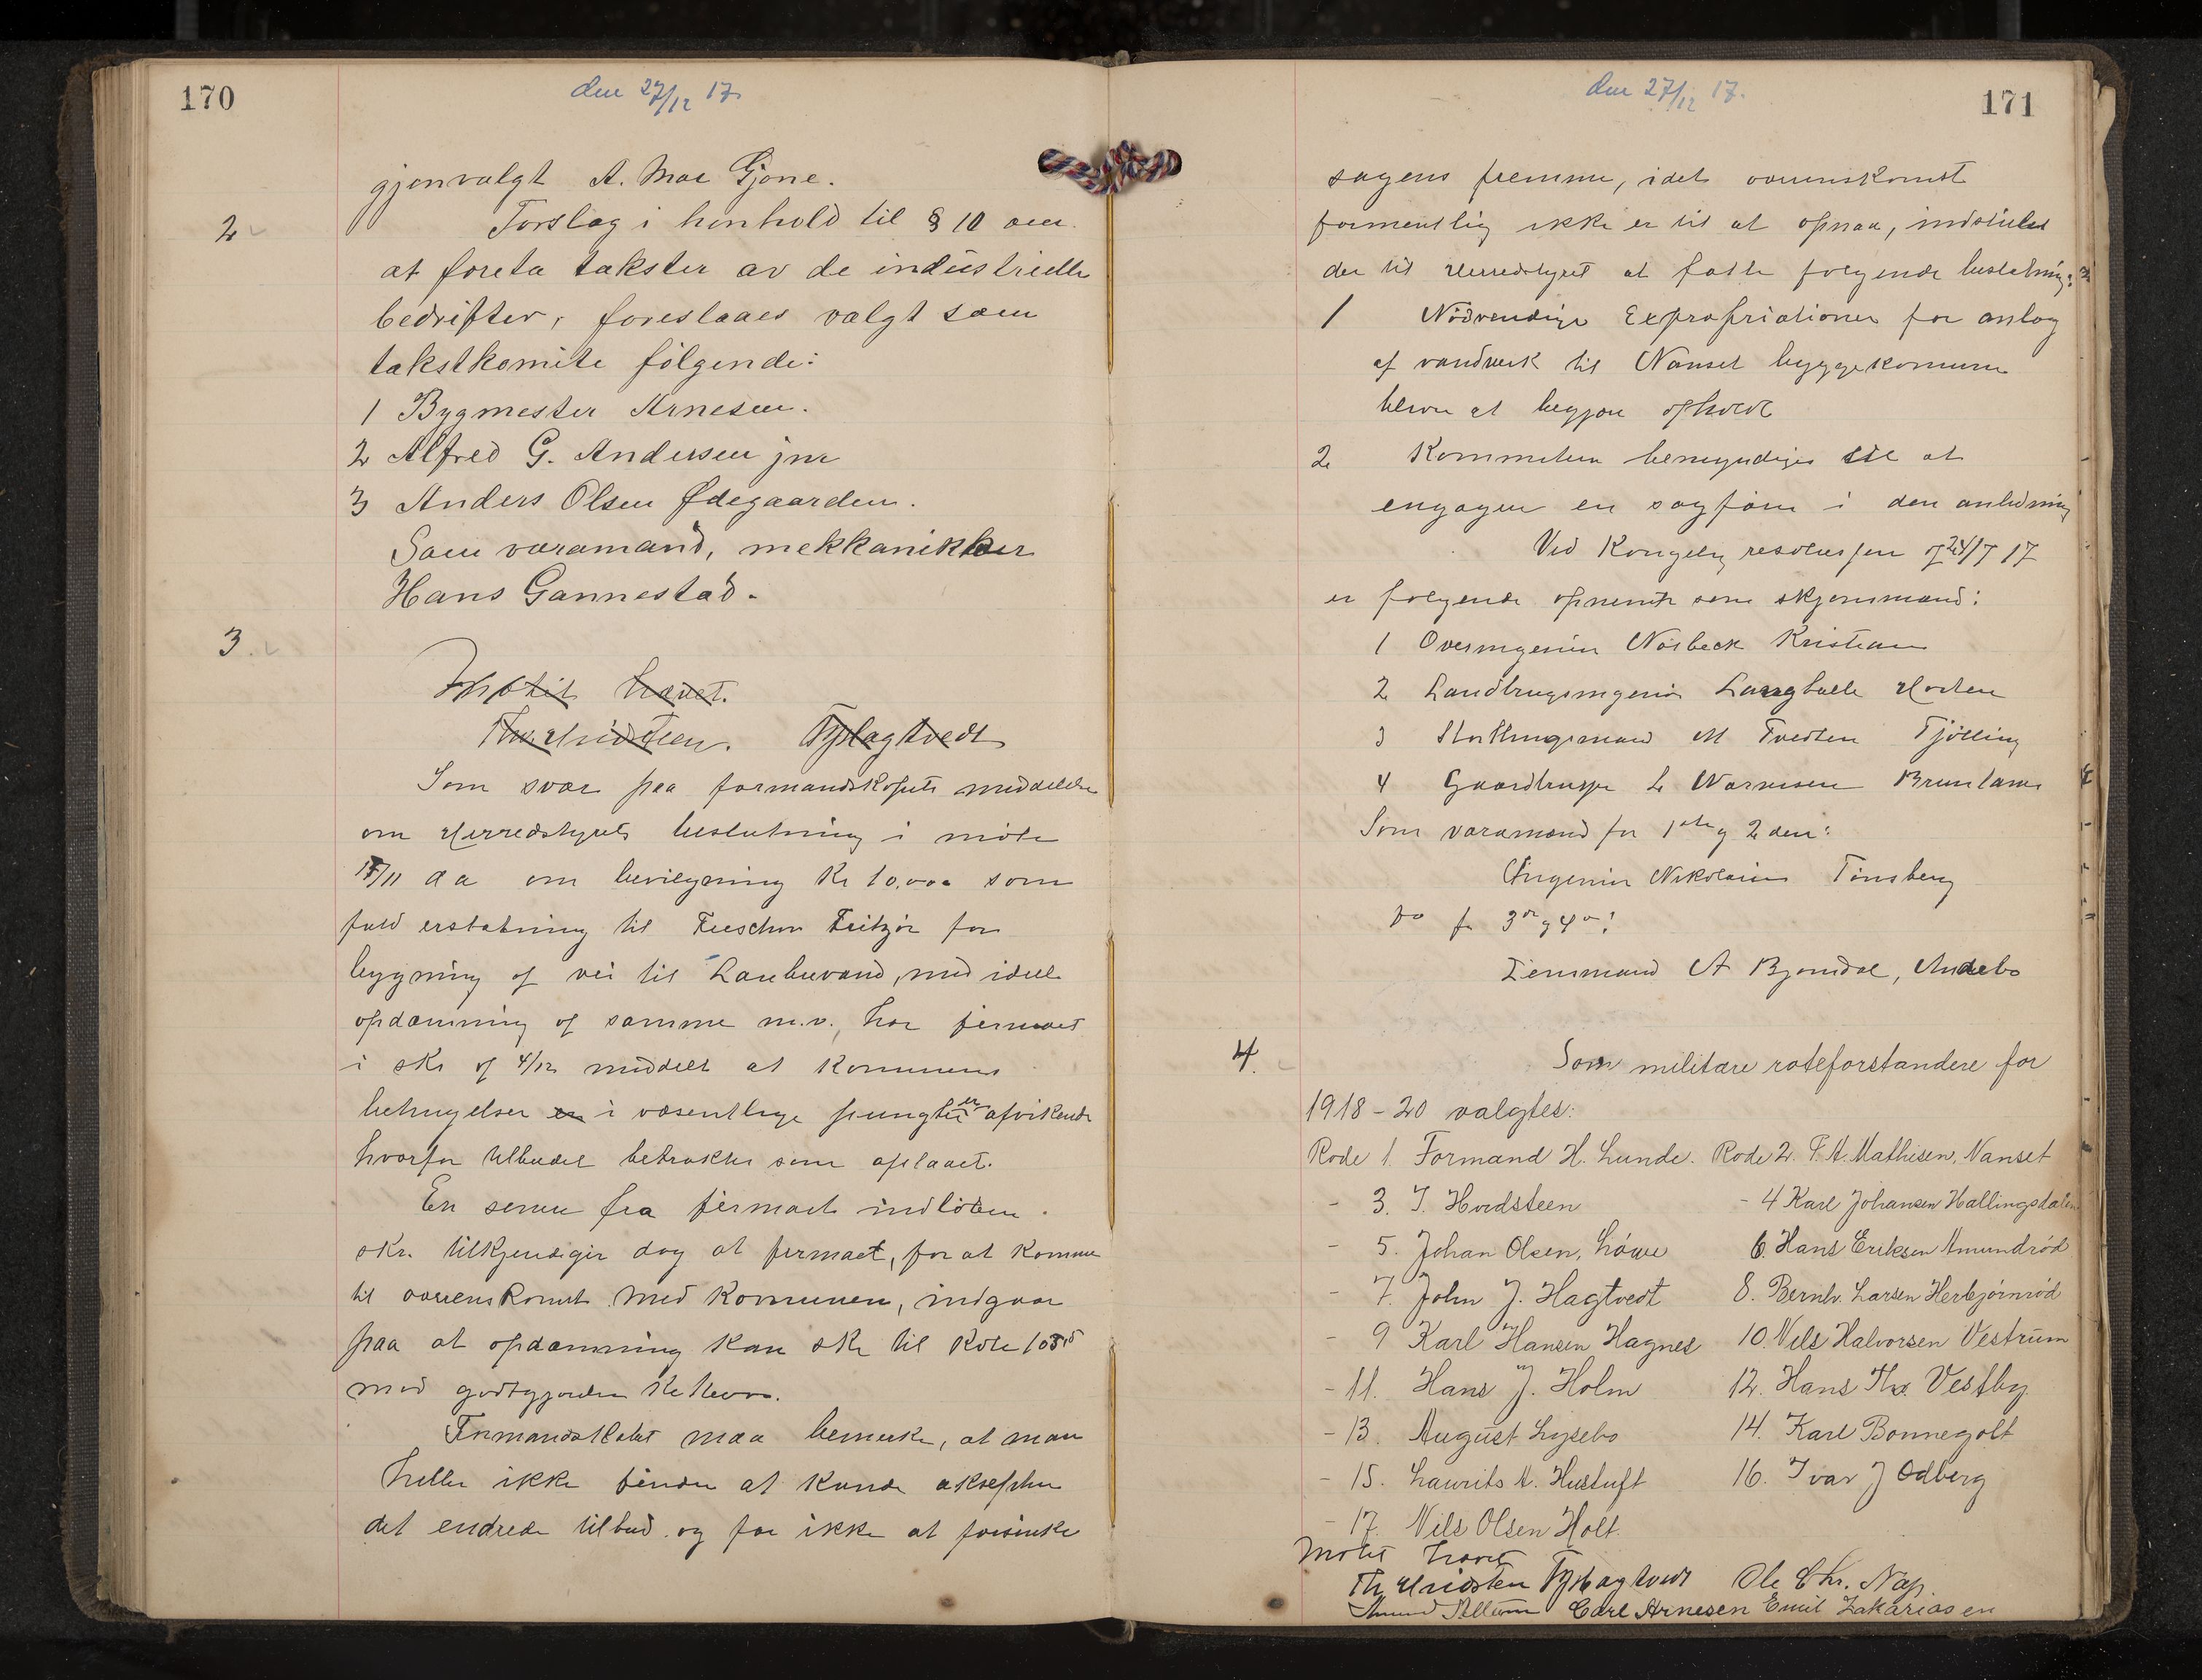 170
den 27/12 17.
gjenvalgt A. Mac Gjone.
2
Forslag i henhold til § 10 om
at foreta takster av de industrielle
bedrifter, foreslaaes valgt som
takstkomite følgende:
1 Bygmester Arnesen.
2 Alfred G. Andersen jnr
3 Anders Olsen Ødegaarden.
Som varamand, mekkanikker
Hans Gannestad.
3.
Møtet hævet.
Som svar paa formandskapets meddelelse
om Herredstyrets beslutning i møte
17/11 d a om bevilgning Kr 10,000 som
fuld erstatning til Treschow Fritzøe for
bygning af vei til Laubervand, med ideel
opdæmning af samme m.v., har firmaet
i skr af 4/12 meddelt at Kommunens
betingelser er i væsentlige pungter afvikende
hvorfor tilbudet betraktes som afslaaet.
En senere fra firmaet indløben
skr. tilkjendegir dog at firmaet, for at komme
til overenskomst med Kommunen, indgaar
paa at opdæmning kan ske til Kote 105
mod godtgjørelse Kr
Formandskabet maa bemerke, at man
heller ikke finder at kunde akseptere
det endrede tilbud og for ikke at forsinke
171
den 27/12 17.
sagens fremme, idet overenskomst
formentlig ikke er til at opnaa, indstilles
der til Herredstyret at fatte følgende beslutning:
1 Nødvendige Expropriationer for anlæg
af vandverk til Nanset byggekommune
blive at begjære afholdt
2 Kommiteen bemyndiges til at
engagere en sagfører i den anledning
Ved Kongelig resolusjon af 24/7 17
er følgende opnevnte som skjønsmænd:
1 Overingeniør Nørbeck Kristiania
2 Landbrugsingeniør Langballe Horten
3 Stortingsmand M Tvedten Tjølling
4 Gaardbruger L Warnesen Brunlanes
Som varamænd for 1ste og 2den:
Ingeniør Nikolaisen Tønsberg
Do for 3de og 4de:
Lensmand A Bjørndal, Andebo
4.
Som militære roteforstandere for
1918-20 valgtes:
Rode 1. Formand H. Lunde. Rode 2. F. A. Mathisen, Nanset
- 3. T. Hvidsteen - 4 Karl Johansen Hallingsdalen
- 5. Johan Olsen, Løwe 6 Hans Eriksen Amundrød
- 7. John J. Hagtvedt 8. Bernh. Larsen Herbjørnrød
- 9 Karl Hansen Hagnes 10. Nils Halvorsen Vestrum
- 11. Hans J. Holm 12. Hans Thv. Vestby
- 13. August Lysebo 14. Karl Bonnegolt
- 15. Laurits A. Hustuft 16. Ivar J Odberg
- 17. Nils Olsen Holt.
Møtet hævet
Th Hvidsten Tj Hagtvedt Ole Chr. Nap.
Carl Arnesen Emil Zakariasen